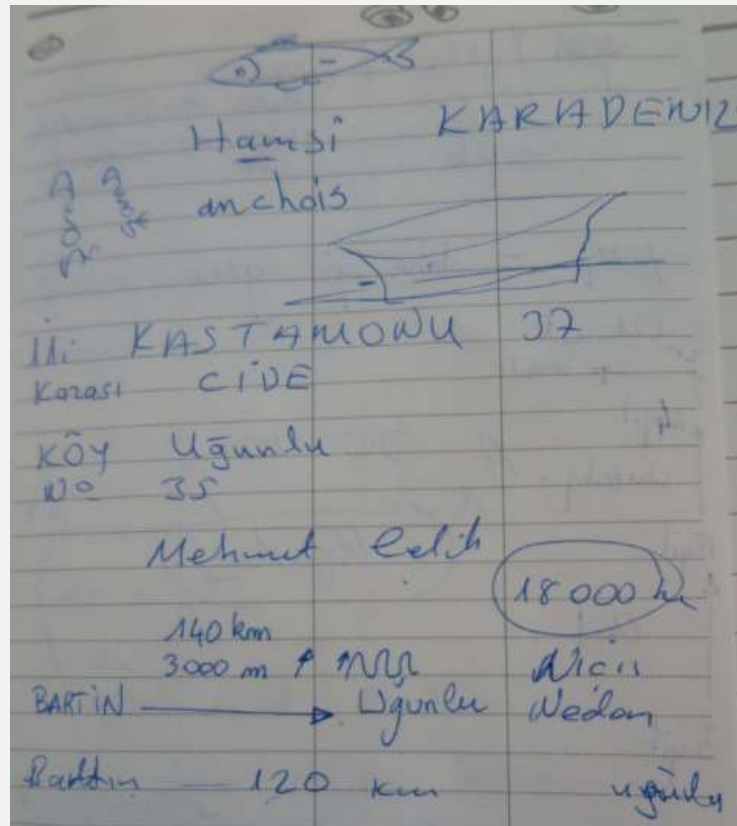 Hamsi KARADENIZ
anchois
İli KASTAMONU 37
Kazası CİDE
KÖY Uğunlu
No 35
Mehmet Celik
18000 km
140 km
3000 m Niçin
BARTIN Uğunlu Neden
Bartın 120 km uğurlu